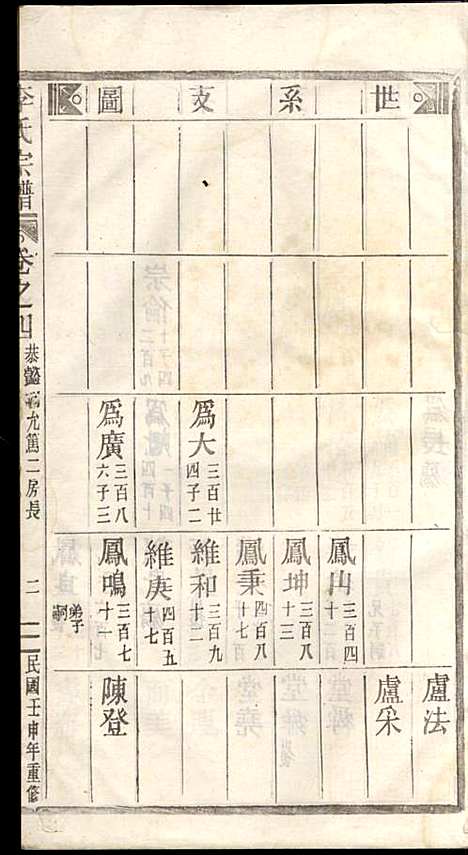 世系支圖
盧法
盧采
鳳山 三百四 十二
鳳坤 三百八 十三
鳳秉 四百八 十八
為大 三百廿 四子二
維和 三百九 十二
維庚 四百五 十七
為廣 三百八 六子三
鳳鳴 三百七 十一
陳登
弟子 嗣
李氏宗譜
卷之四
二房長
二
民國壬申年重修